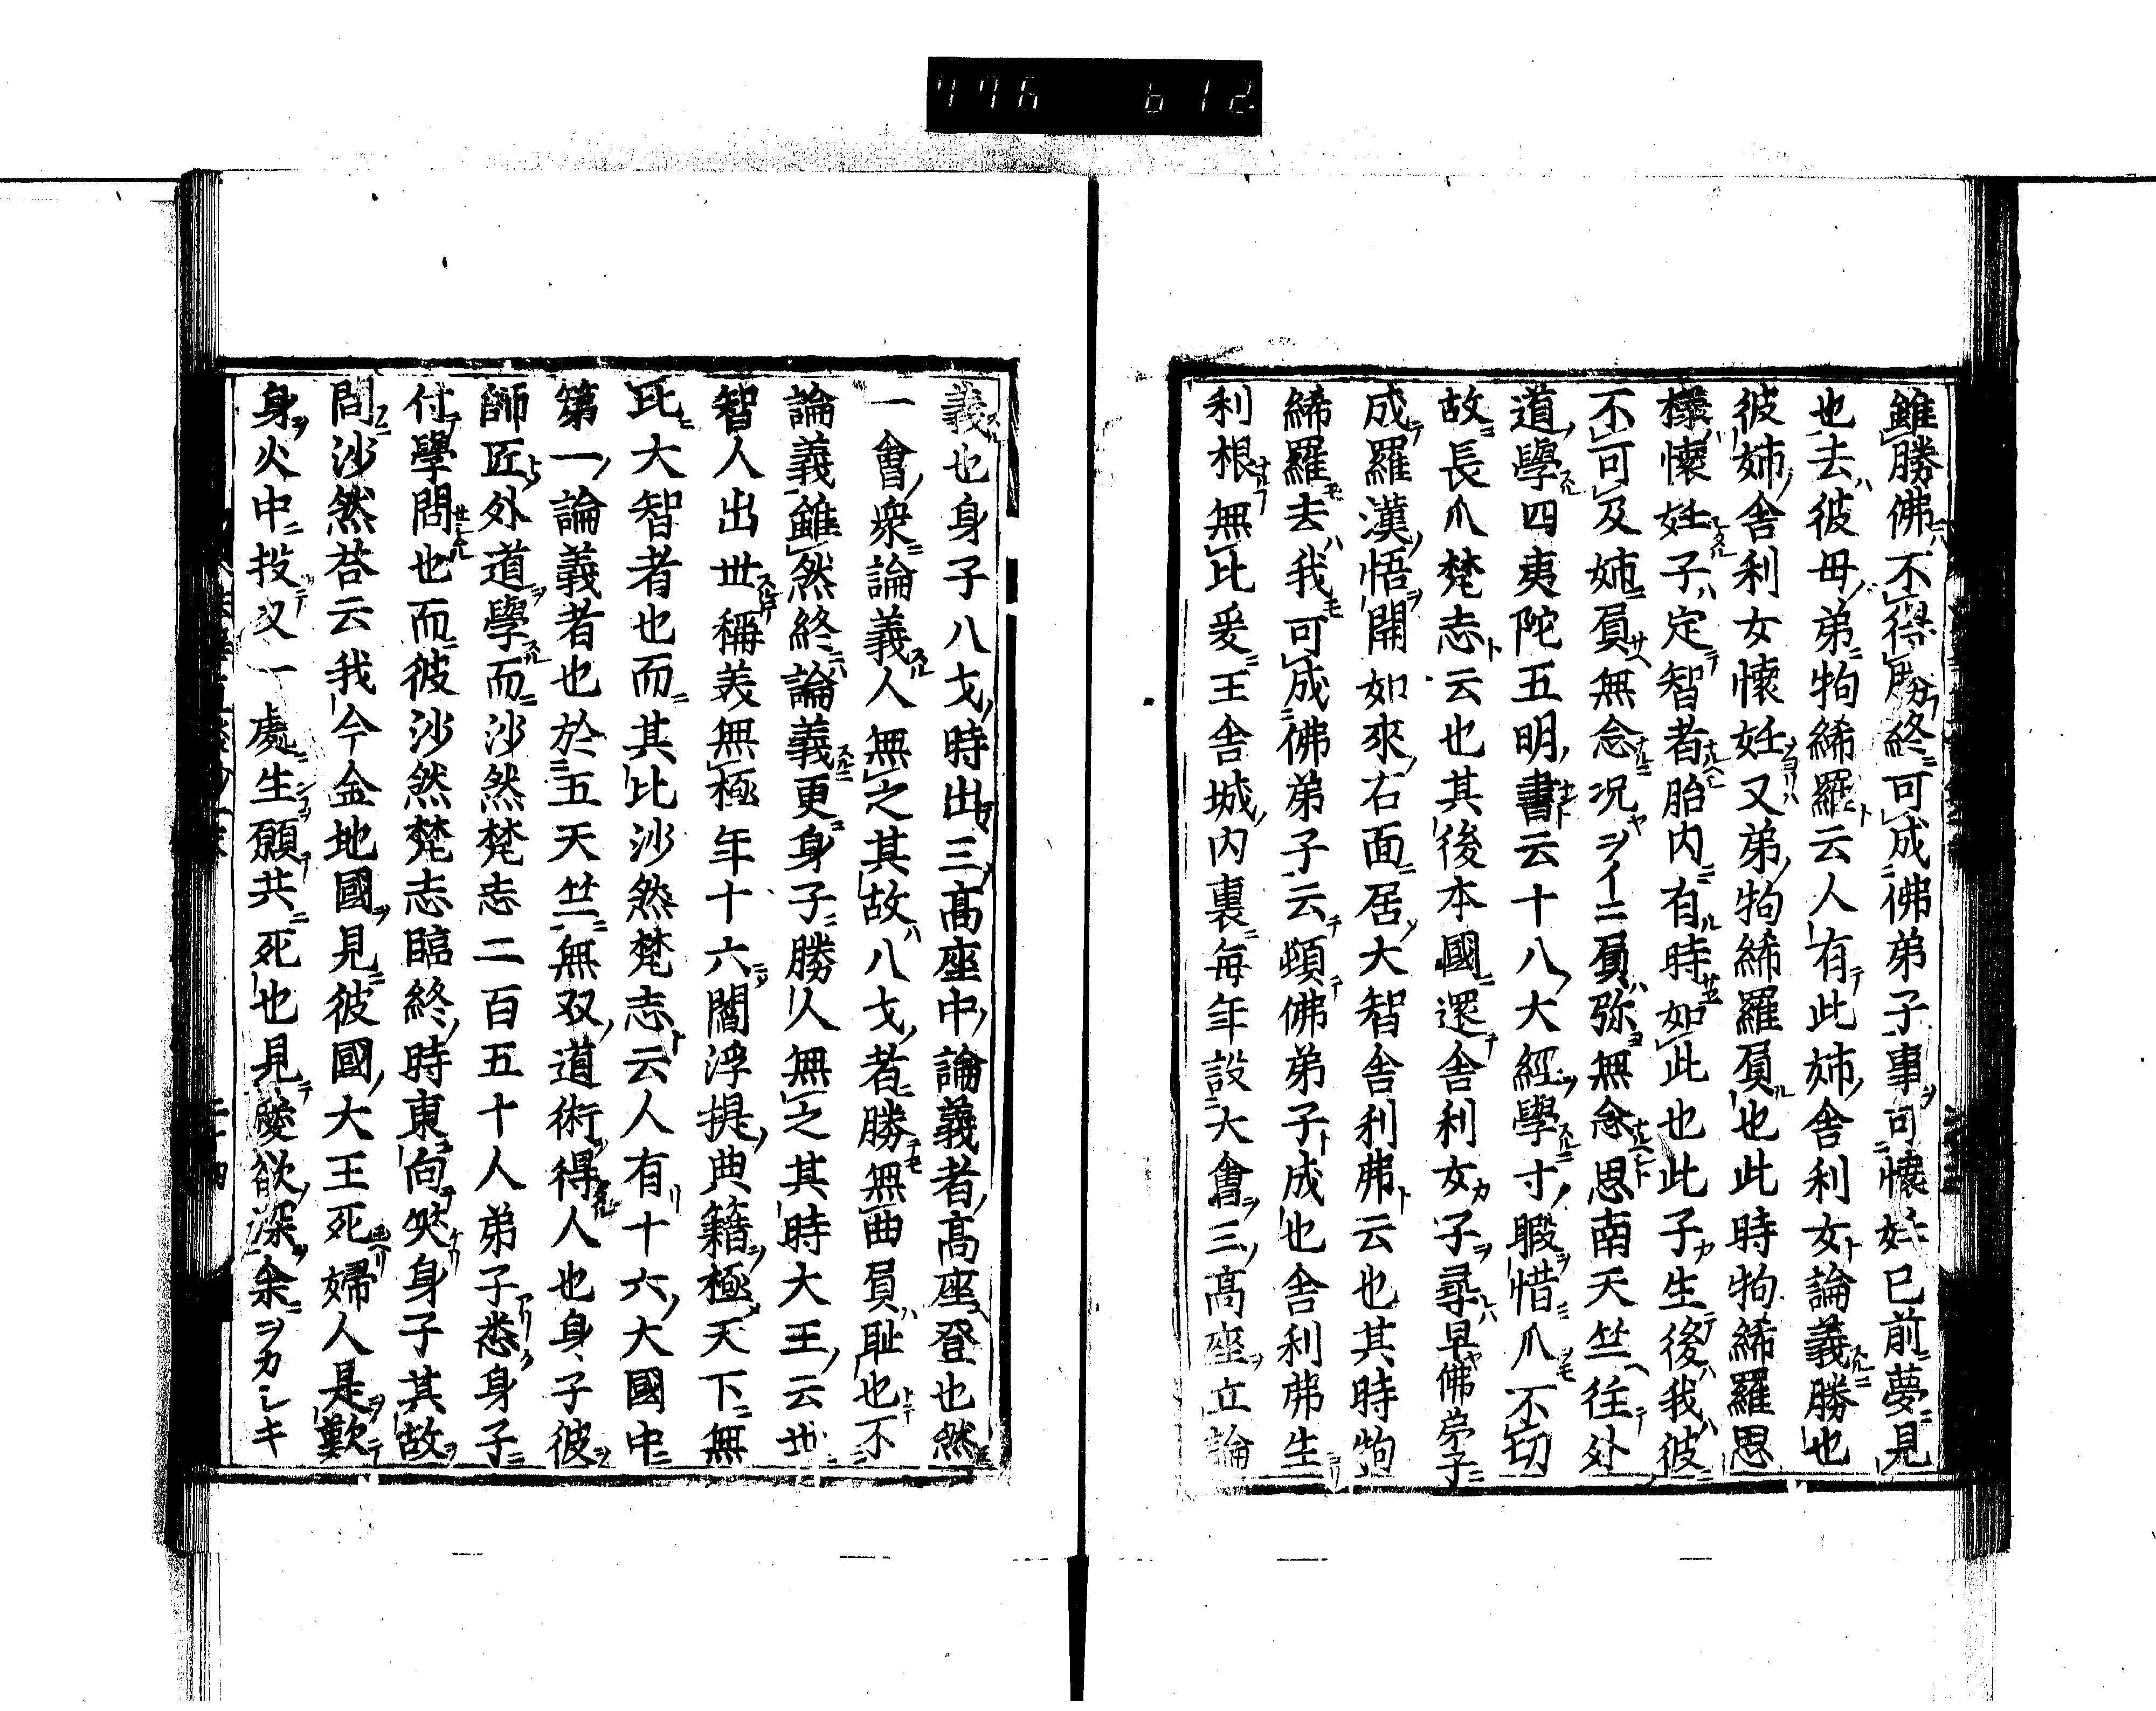 776 612
雖勝佛不得勝終可成佛弟子事可懷妊已前夢見
也去彼母弟㸿絺羅云人有此姉舎利女論義勝也
彼姉舎利女懷妊又弟㸿絺羅負也此時㸿絺羅思
樣懷妊子定智者胎内有時如此也此子生後我彼
不可及姉負無念况ヲイニ負弥無念思南天竺往处
道學四夷陀五明書云十八大經學寸暇惜爪不切
故長爪梵志云也其後本國還舎利女子尋早佛弟子
成羅漢悟開如來右面居大智舎利弗云也其時㸿
絺羅去我可成佛弟子云頓佛弟子成也舎利弗生
利根無比爰王舎城内裏毎年設大會三髙座立論
義也身子八才時出三髙座中論義者髙座登也然
一會衆論義人無之其故八才者勝無曲負耻也不
論義雖然終論義更身子勝人無之其時大王云丗
智人出丗稱美無極年十六閻浮提典籍極天下無
比大智者也而其比沙然梵志云人有十六大國中
第一論義者也於五天竺無双道術得人也身子彼
師匠外道學而沙然梵志二百五十人弟子悉身子
付學問也而彼沙然梵志臨終時東向咲身子其故
問沙然荅云我今金地國見彼國大王死婦人是歎
身火中投又一處生願共死也見婬欲深余ヲカシキ